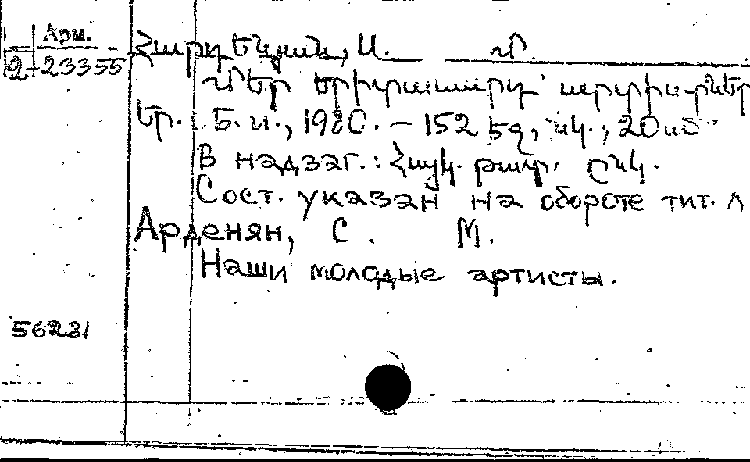 Арм.
2-23355
Մեր երիտասարդ արտիստներ
Եր. : Б. и., 1980. – 152 էջ, նկ., 20 սմ
В надзаг.: Հայկ. թատր. ընկ.
Сост. указан на обороте тит. л
Арденян, С. М.
Наши молодые артисты.
56231